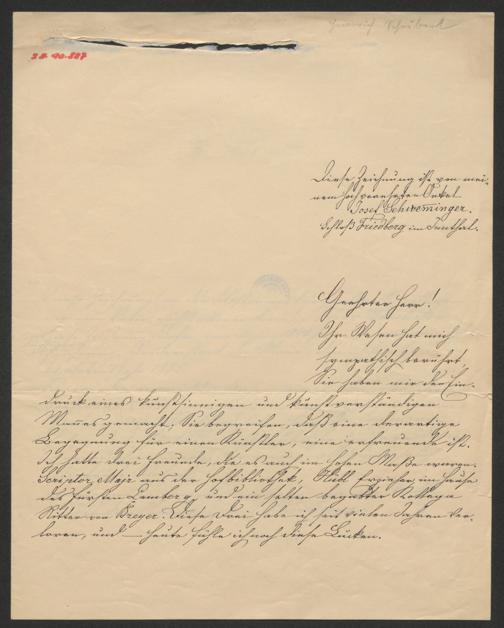 Heinrich Schubert
Diese Zeichnung ist von mei-
nem hochverehrten Onkel
Josef Schwemminger.
Schloß Friedberg im Innthal.
Geehrter Herr!
Ihr Wesen hat mich
sympathisch berührt
Sie haben mir den Ein-
druck eines kunstsinnigen und kunstverständigen
Mannes gemacht, Sie begreifen, daß eine derartige
Begegnung für einen Künstler, eine erfreuende ist.
Ich hatte drei Freunde, die es auch im hohen Maße waren.
Scriptor, Majr aus der Hofbibliothek, Erzieher im Hause
des Fürsten und ein selten begabter Kollega
Ritter von Preyer. Diese Drei habe ich seit vielen Jahren ver-
loren, und — heute fühle ich noch diese Lücken.